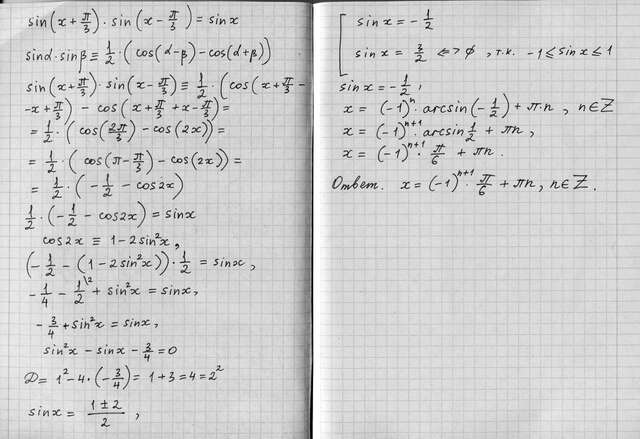 sin(x + π/3) · sin(x − π/3) = sinx
sinα · sinβ ≡ 1/2 · (cos(α−β) − cos(α+β))
sin(x + π/3) · sin(x − π/3) ≡ 1/2 · (cos(x + π/3 −
−x + π/3) − cos(x + π/3 + x − π/3)) =
= 1/2 · (cos(2π/3) − cos(2x)) =
= 1/2 · (cos(π − π/3) − cos(2x)) =
= 1/2 · (−1/2 − cos2x)
1/2 · (−1/2 − cos2x) = sinx
cos2x ≡ 1 − 2sin²x,
(−1/2 − (1 − 2sin²x)) · 1/2 = sinx,
−1/4 − 1/2\² + sin²x = sinx,
−3/4 + sin²x = sinx,
sin²x − sinx − 3/4 = 0
D = 1² − 4 · (−3/4) = 1 + 3 = 4 = 2²
sinx = (1 ± 2)/2 ,
[ sinx = −1/2
sinx = 3/2 <=> ∅ , т.к. −1 ≤ sinx ≤ 1
sinx = −1/2 ,
x = (−1)ⁿ · arcsin(−1/2) + π·n , n∈Z
x = (−1)ⁿ⁺¹ · arcsin 1/2 + πn ,
x = (−1)ⁿ⁺¹ · π/6 + πn .
Ответ. x = (−1)ⁿ⁺¹ · π/6 + πn , n∈Z.